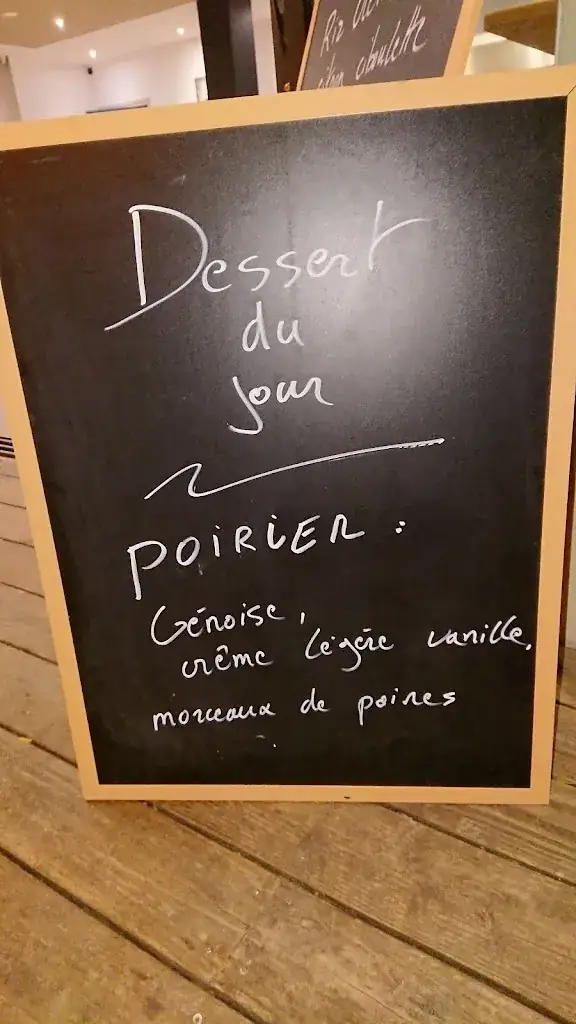 Riz
ciboulette
Dessert
du
jour
POIRIER :
Génoise,
crème légère vanille,
morceaux de poires